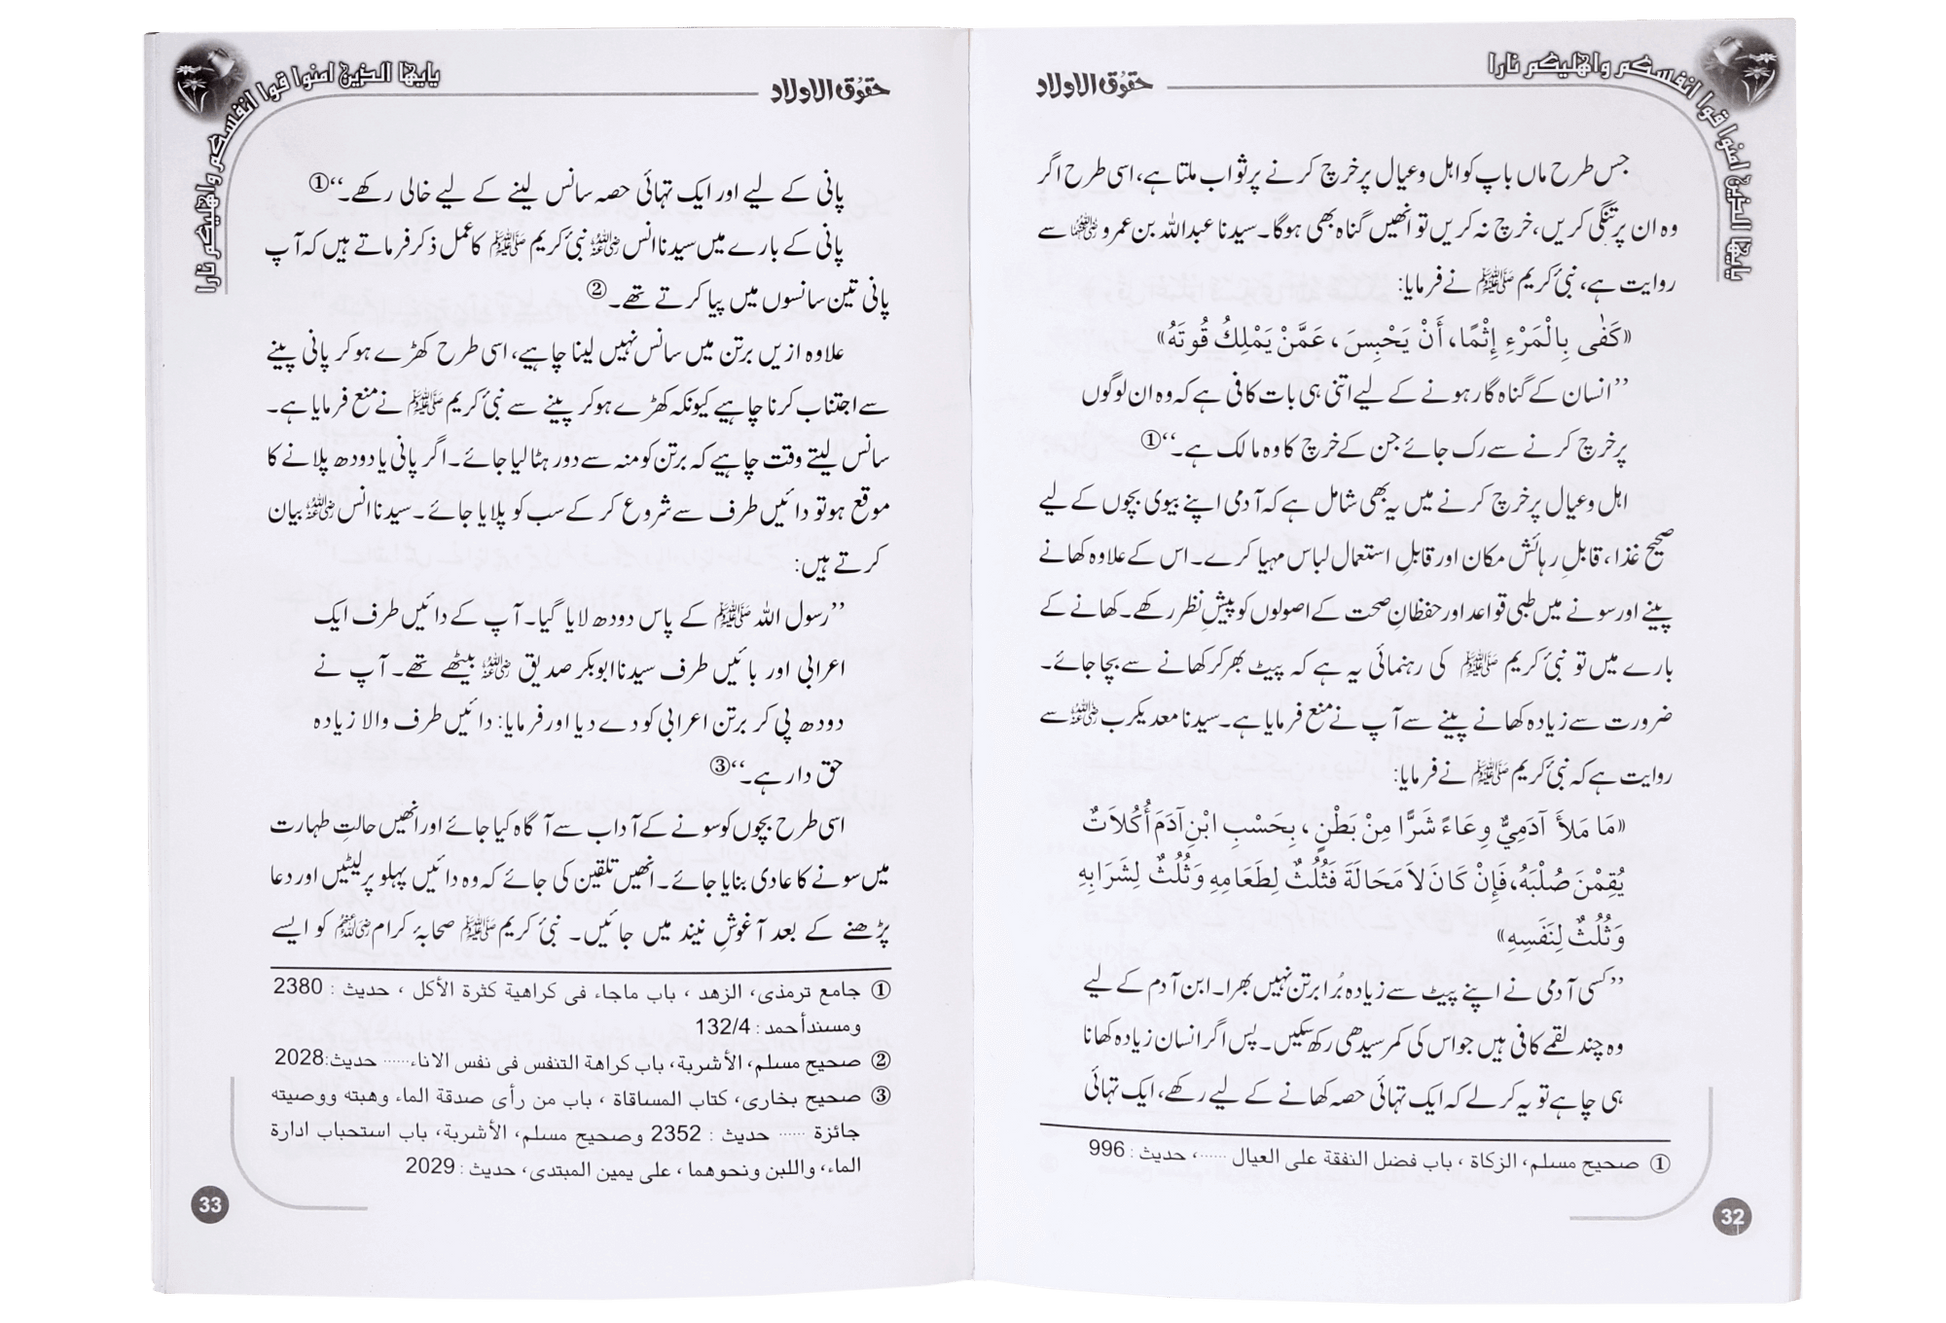 یایھا الذین امنوا قوا انفسکم واھلیکم نارا
حقوق الاولاد
جس طرح ماں باپ کو اہل و عیال پر خرچ کرنے پر ثواب ملتا ہے، اسی طرح اگر
وہ ان پر تنگی کریں، خرچ نہ کریں تو انھیں گناہ بھی ہوگا۔ سیدنا عبداللہ بن عمرو رضی اللہ عنہما سے
روایت ہے، نبیٔ کریم ﷺ نے فرمایا:
«كَفٰى بِالْمَرْءِ إِثْمًا، أَنْ يَحْبِسَ ، عَمَّنْ يَمْلِكُ قُوتَهُ»
’’انسان کے گناہ گار ہونے کے لیے اتنی ہی بات کافی ہے کہ وہ ان لوگوں
پر خرچ کرنے سے رک جائے جن کے خرچ کا وہ مالک ہے۔‘‘①
اہل و عیال پر خرچ کرنے میں یہ بھی شامل ہے کہ آدمی اپنے بیوی بچوں کے لیے
صحیح غذا، قابلِ رہائش مکان اور قابلِ استعمال لباس مہیا کرے۔ اس کے علاوہ کھانے
پینے اور سونے میں طبی قواعد اور حفظانِ صحت کے اصولوں کو پیشِ نظر رکھے۔ کھانے کے
بارے میں تو نبیٔ کریم ﷺ کی رہنمائی یہ ہے کہ پیٹ بھر کر کھانے سے بچا جائے۔
ضرورت سے زیادہ کھانے پینے سے آپ نے منع فرمایا ہے۔ سیدنا معدیکرب رضی اللہ عنہ سے
روایت ہے کہ نبیٔ کریم ﷺ نے فرمایا:
«مَا مَلأَ آدَمِيٌّ وِعَاءً شَرًّا مِنْ بَطْنٍ ، بِحَسْبِ ابْنِ آدَمَ أُكُلَاتٌ
يُقِمْنَ صُلْبَهُ، فَإِنْ كَانَ لاَ مَحَالَةَ فَثُلُثٌ لِطَعَامِهِ وَثُلُثٌ لِشَرَابِهِ
وَثُلُثٌ لِنَفَسِهِ»
’’کسی آدمی نے اپنے پیٹ سے زیادہ بُرا برتن نہیں بھرا۔ ابن آدم کے لیے
وہ چند لقمے کافی ہیں جو اس کی کمر سیدھی رکھ سکیں۔ پس اگر انسان زیادہ کھانا
ہی چاہے تو یہ کر لے کہ ایک تہائی حصہ کھانے کے لیے رکھے، ایک تہائی
① صحیح مسلم، الزکاة ، باب فضل النفقة علی العیال ......، حدیث : 996
32
یایھا الذین امنوا قوا انفسکم واھلیکم نارا
حقوق الاولاد
پانی کے لیے اور ایک تہائی حصہ سانس لینے کے لیے خالی رکھے۔‘‘①
پانی کے بارے میں سیدنا انس رضی اللہ عنہ نبیٔ کریم ﷺ کا عمل ذکر فرماتے ہیں کہ آپ
پانی تین سانسوں میں پیا کرتے تھے۔②
علاوہ ازیں برتن میں سانس نہیں لینا چاہیے، اسی طرح کھڑے ہو کر پانی پینے
سے اجتناب کرنا چاہیے کیونکہ کھڑے ہو کر پینے سے نبیٔ کریم ﷺ نے منع فرمایا ہے۔
سانس لیتے وقت چاہیے کہ برتن کو منہ سے دور ہٹا لیا جائے۔ اگر پانی یا دودھ پلانے کا
موقع ہو تو دائیں طرف سے شروع کر کے سب کو پلایا جائے۔ سیدنا انس رضی اللہ عنہ بیان
کرتے ہیں:
’’رسول اللہ ﷺ کے پاس دودھ لایا گیا۔ آپ کے دائیں طرف ایک
اعرابی اور بائیں طرف سیدنا ابوبکر صدیق رضی اللہ عنہ بیٹھے تھے۔ آپ نے
دودھ پی کر برتن اعرابی کو دے دیا اور فرمایا: دائیں طرف والا زیادہ
حق دار ہے۔‘‘③
اسی طرح بچوں کو سونے کے آداب سے آگاہ کیا جائے اور انھیں حالتِ طہارت
میں سونے کا عادی بنایا جائے۔ انھیں تلقین کی جائے کہ وہ دائیں پہلو پر لیٹیں اور دعا
پڑھنے کے بعد آغوشِ نیند میں جائیں۔ نبیٔ کریم ﷺ صحابۂ کرام رضی اللہ عنہم کو ایسے
① جامع ترمذی، الزھد ، باب ماجاء فی کراھیة کثرة الأکل ، حدیث : 2380
ومسند أحمد : 132/4
② صحیح مسلم، الأشربة، باب کراھة التنفس فی نفس الاناء...... حدیث:2028
③ صحیح بخاری، کتاب المساقاة ، باب من رأی صدقة الماء وھبته ووصیته
جائزة ...... حدیث : 2352 وصحیح مسلم، الأشربة، باب استحباب ادارة
الماء، واللبن ونحوھما ، علی یمین المبتدی، حدیث : 2029
33